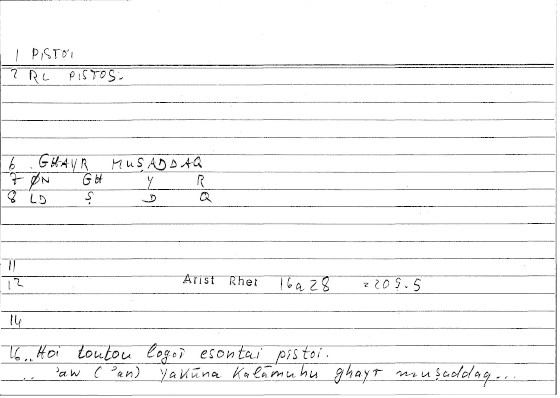 1 PISTOI
2 RL PISTOS.
6 . GHAYR MUṢADDAQ
7 ØN GH Y R
8 LD Ṣ D Q
11
12 Arist Rhet 16a28 =209.5
14
16.. Hoi toutou logoi esontai pistoi.
.. ʾaw (ʾan) yakūna kalāmuhu ghayr muṣaddaq...